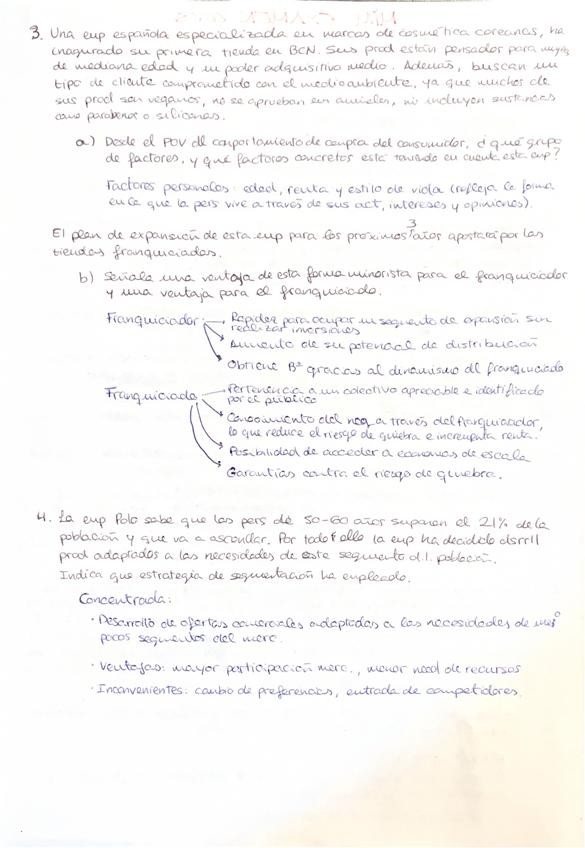 3. Una emp española especializada en marcas de cosmética coreanas, ha
inagurado su primera tienda en BCN. Sus prod están pensados para mujeres
de mediana edad y un poder adquisitivo medio. Además, buscan un
tipo de cliente comprometido con el medioambiente, ya que muchos de
sus prod son veganos, no se aprueban en animales, ni incluyen sustancias
como parabenos o siliconas.
a) Desde el POV dl comportamiento de compra del consumidor, ¿qué grupo
de factores, y qué factores concretos está teniendo en cuenta esta emp?
Factores personales: edad, renta y estilo de vida (refleja la forma
en la que la pers vive a través de sus act, intereses y opiniones).
El plan de expansión de esta emp para los próximos 3 años apostará por las
tiendas franquiciadas.
b) Señala una ventaja de esta forma minorista para el franquiciador
y una ventaja para el franquiciado.
Franquiciador: → Rapidez para ocupar un segmento de expansión sin
realizar inversiones
→ Aumento de su potencial de distribución
→ Obtiene Bº gracias al dinamismo dl franquiciado
Franquiciado → Pertenencia a un colectivo apreciable e identificado
por el público
→ Conocimiento del neg a través del franquiciador,
lo que reduce el riesgo de quiebra e incrementa renta.
→ Posibilidad de acceder a economías de escala
→ Garantías contra el riesgo de quiebra.
4. La emp Polo sabe que las pers de 50-60 años suponen el 21% de la
población y que va a . Por todo ello la emp ha decidido dsrrll
prod adaptados a las necesidades de este segmento d.l. población.
Indica que estrategia de segmentación ha empleado.
Concentrada:
· Desarrollo de ofertas comerciales adaptadas a las necesidades de uno o
pocos segmentos del merc.
· Ventajas: mayor participación merc., menor necd de recursos
· Inconvenientes: cambio de preferencias, entrada de competidores.